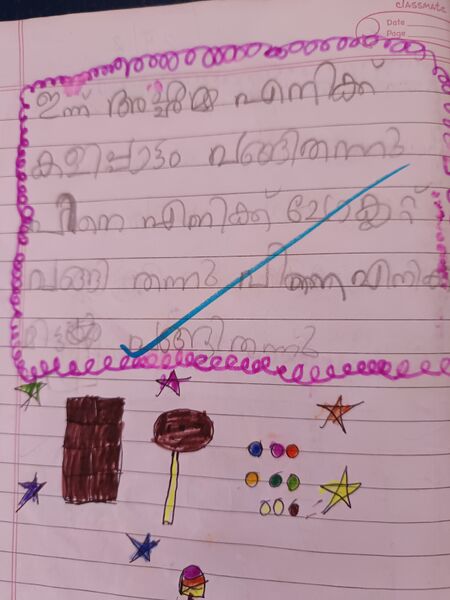 classmate
Date
Page
ഇന്ന് എനിക്ക്
കളിപ്പാട്ടം വങ്ങിതന്നു
പിനെ എനിക്ക്
വങ്ങി തന്നു പിന്നെ എനിക്
വങ്ങിതന്നു